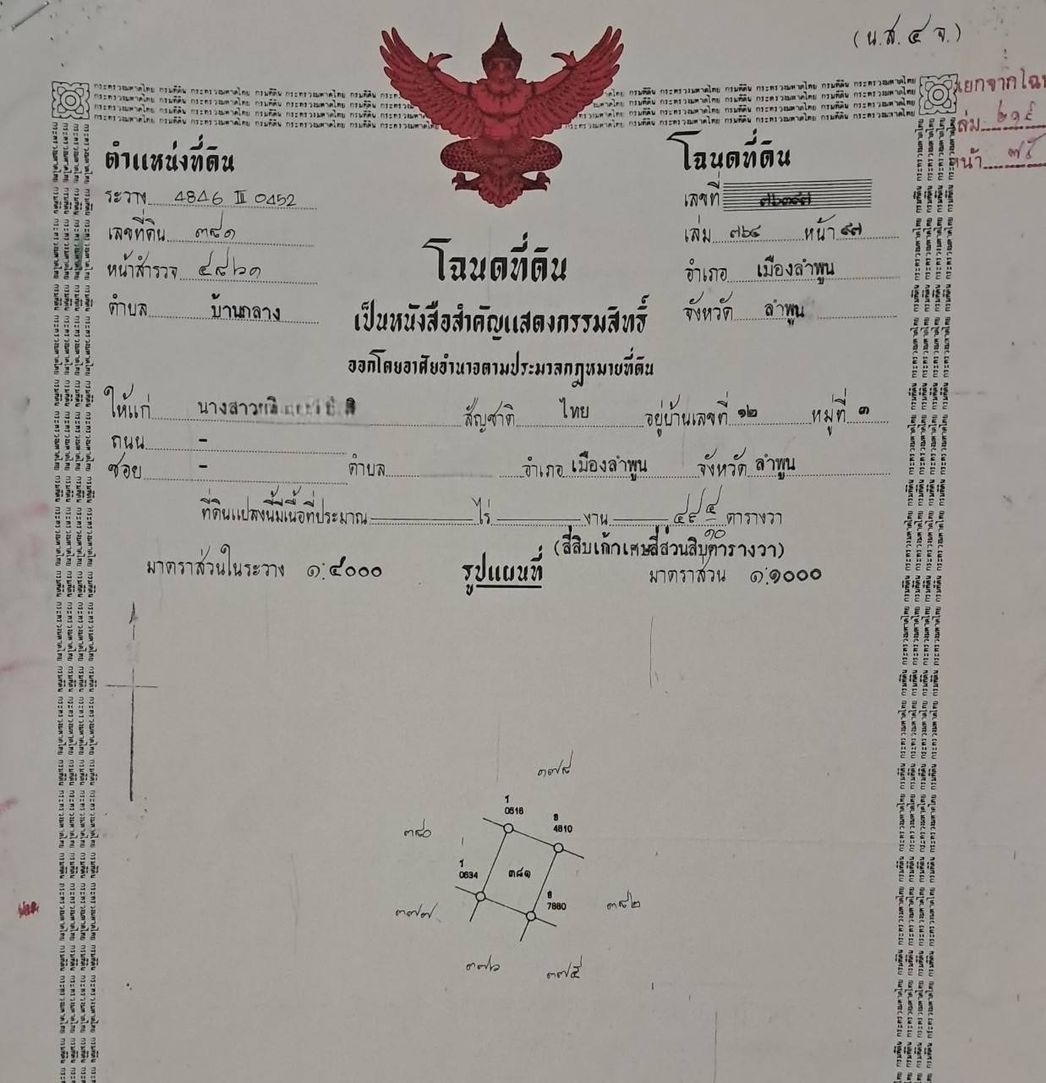 (น.ส. ๔ จ.)
แยกจากโฉนด
เล่ม ๒๑๙
หน้า ๗๕
ตำแหน่งที่ดิน
ระวาง 4846 III 0452
เลขที่ดิน ๓๘๑
หน้าสำรวจ ๔๘๒๑
ตำบล บ้านกลาง
โฉนดที่ดิน
เลขที่
เล่ม ๗๖๔ หน้า ๘๗
อำเภอ เมืองลำพูน
จังหวัด ลำพูน
โฉนดที่ดิน
เป็นหนังสือสำคัญแสดงกรรมสิทธิ์
ออกโดยอาศัยอำนาจตามประมวลกฎหมายที่ดิน
ให้แก่ นางสาว สัญชาติ ไทย อยู่บ้านเลขที่ ๑๒ หมู่ที่ ๓
ถนน -
ซอย - ตำบล อำเภอ เมืองลำพูน จังหวัด ลำพูน
ที่ดินแปลงนี้มีเนื้อที่ประมาณ ไร่ งาน ๔๙ ๔/๑๐ ตารางวา
(สี่สิบเก้าเศษสี่ส่วนสิบตารางวา)
มาตราส่วนในระวาง ๑:๔๐๐๐ รูปแผนที่ มาตราส่วน ๑:๑๐๐๐
๓๗๙
1
0616
8
4810
๓๘๐
1
0634
๓๘๑
8
7880
๓๘๒
๓๗๗
๓๗๖
๓๗๕